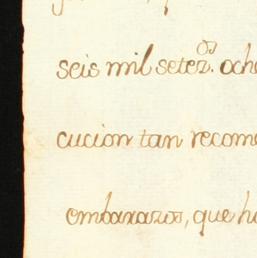 seis mil setez.os oche
cucion tan recome
embaxazos, que ha